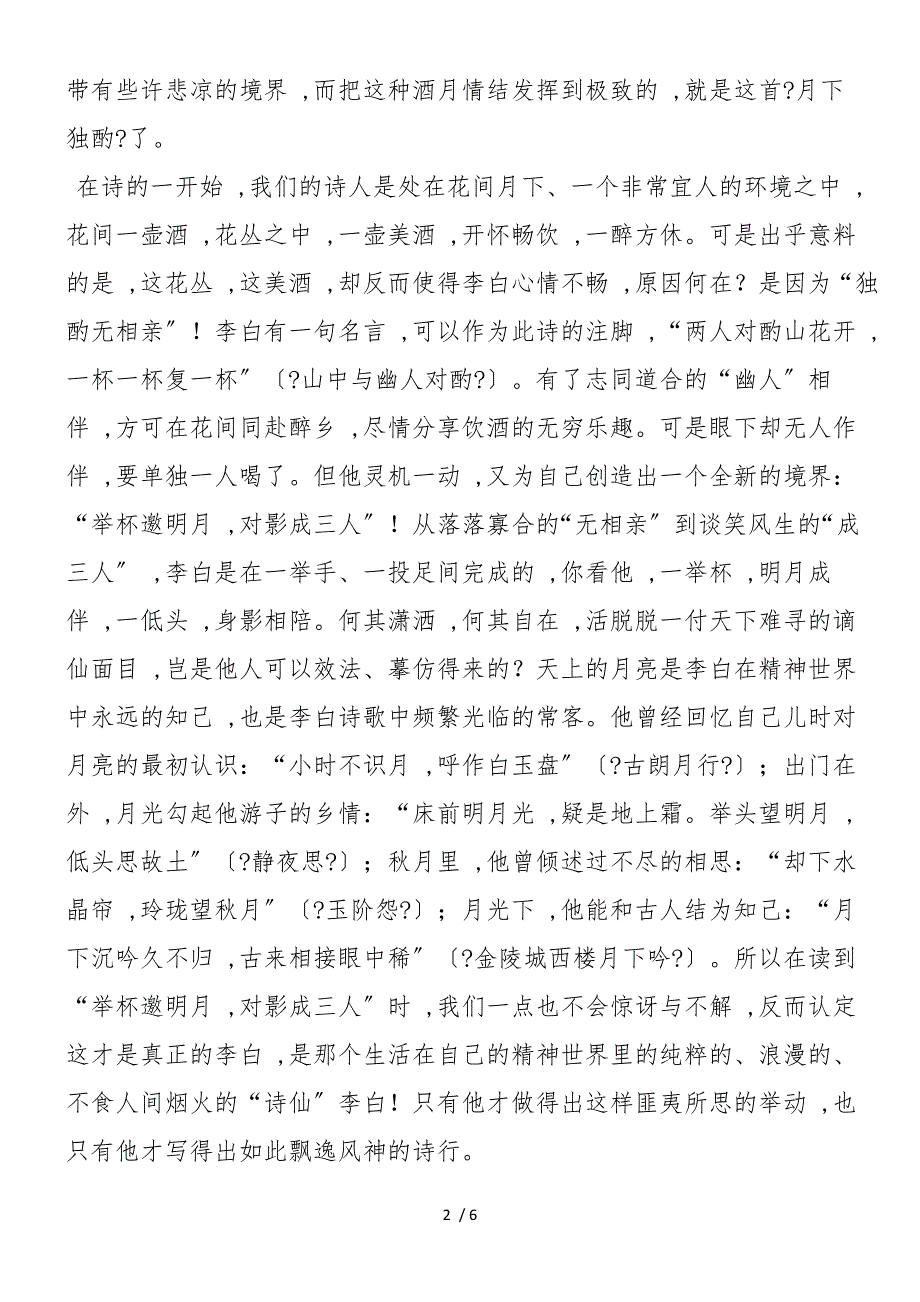 带有些许悲凉的境界 ,而把这种酒月情结发挥到极致的 ,就是这首?月下
独酌?了。
在诗的一开始 ,我们的诗人是处在花间月下、一个非常宜人的环境之中 ,
花间一壶酒 ,花丛之中 ,一壶美酒 ,开怀畅饮 ,一醉方休。可是出乎意料
的是 ,这花丛 ,这美酒 ,却反而使得李白心情不畅 ,原因何在？是因为“独
酌无相亲〞！李白有一句名言 ,可以作为此诗的注脚 ,“两人对酌山花开 ,
一杯一杯复一杯〞〔?山中与幽人对酌?〕。有了志同道合的“幽人〞相
伴 ,方可在花间同赴醉乡 ,尽情分享饮酒的无穷乐趣。可是眼下却无人作
伴 ,要单独一人喝了。但他灵机一动 ,又为自己创造出一个全新的境界：
“举杯邀明月 ,对影成三人〞！从落落寡合的“无相亲〞到谈笑风生的“成
三人〞 ,李白是在一举手、一投足间完成的 ,你看他 ,一举杯 ,明月成
伴 ,一低头 ,身影相陪。何其潇洒 ,何其自在 ,活脱脱一付天下难寻的谪
仙面目 ,岂是他人可以效法、摹仿得来的？天上的月亮是李白在精神世界
中永远的知己 ,也是李白诗歌中频繁光临的常客。他曾经回忆自己儿时对
月亮的最初认识：“小时不识月 ,呼作白玉盘〞〔?古朗月行?〕；出门在
外 ,月光勾起他游子的乡情：“床前明月光 ,疑是地上霜。举头望明月 ,
低头思故土〞〔?静夜思?〕；秋月里 ,他曾倾述过不尽的相思：“却下水
晶帘 ,玲珑望秋月〞〔?玉阶怨?〕；月光下 ,他能和古人结为知己：“月
下沉吟久不归 ,古来相接眼中稀〞〔?金陵城西楼月下吟?〕。所以在读到
“举杯邀明月 ,对影成三人〞时 ,我们一点也不会惊讶与不解 ,反而认定
这才是真正的李白 ,是那个生活在自己的精神世界里的纯粹的、浪漫的、
不食人间烟火的“诗仙〞李白！只有他才做得出这样匪夷所思的举动 ,也
只有他才写得出如此飘逸风神的诗行。
2 / 6